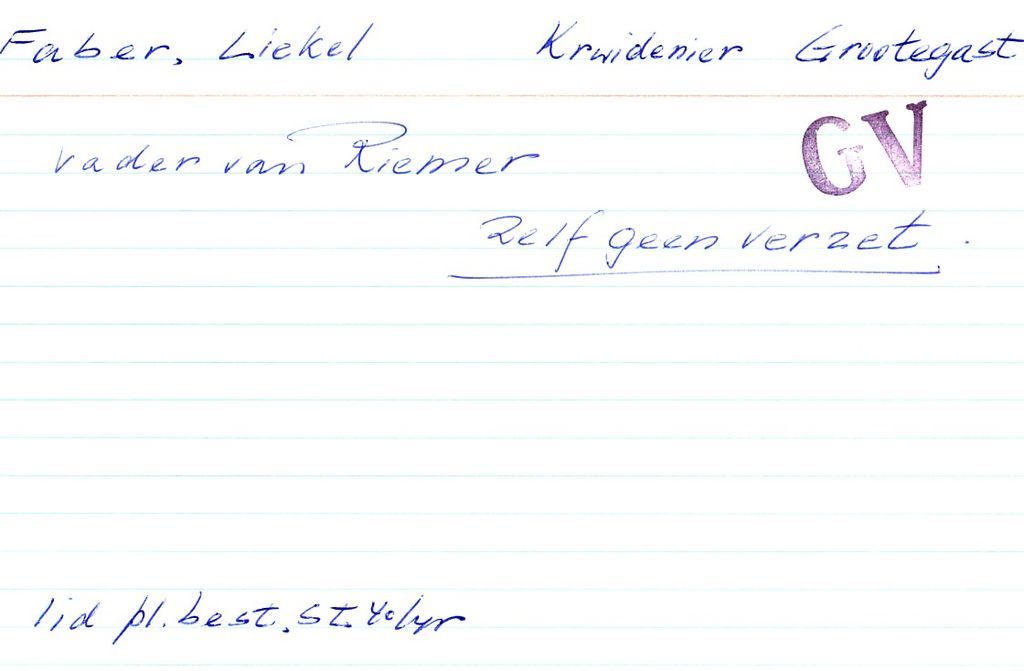 Faber, Liekel Kruidenier Grootegast
vader van Riemer
GV
Zelf geen verzet.
lid pl. best. St. 40/45